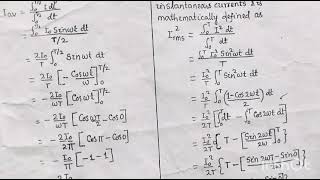 I_av = ∫₀^{T/2} I dt / T/2
= ∫₀^{T/2} I₀ Sinωt dt / T/2
= 2I₀/T ∫₀^{T/2} Sinωt dt
= 2I₀/T [-Cosωt/ω]₀^{T/2}
= -2I₀/ωT [Cosωt]₀^{T/2}
= -2I₀/ωT [Cos ωT/2 - Cos0]
= -2I₀/2π [Cosπ - Cos0]
= -I₀/π [-1-1]
instantaneous currents
mathematically defined as
I²rms = ∫₀^T I² dt / ∫₀^T dt
= ∫₀^T I₀² Sin²ωt dt / T
= I₀²/T ∫₀^T Sin²ωt dt
= I₀²/T ∫₀^T (1-Cos2ωt)/2 dt
= I₀²/2T [∫₀^T dt - ∫₀^T Cos2ωt dt]
= I₀²/2T { T - [Sin2ωt/2ω]₀^T }
= I₀²/2T { T - [Sin 2ωT - Sin0/2ω] }